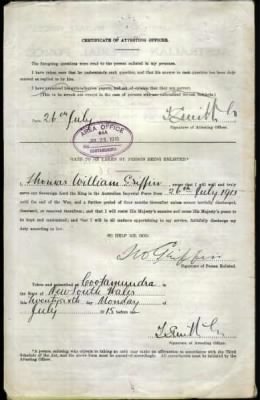 CERTIFICATE OF ATTESTING OFFICER.
The foregoing questions were read to the person enlisted in my presence.
I have taken care that he understands each question, and that his answer to each question has been duly
entered as replied to by him.
Date 26th July
Signature of Attesting Officer.
AREA OFFICE
COOTAMUNDRA
OATH TO BE TAKEN BY PERSON BEING ENLISTED.*
I, Thomas William Griffin swear that I will well and truly
serve our Sovereign Lord the King in the Australian Imperial Force from 26th July 1915
until the end of the War, and a further period of four months thereafter unless sooner lawfully discharged,
dismissed, or removed therefrom; and that I will resist His Majesty's enemies and cause His Majesty's peace
to be kept and maintained; and that I will in all matters appertaining to my service, faithfully discharge my
duty according to law.
SO HELP ME GOD.
Griffin
Signature of Person Enlisted.
Taken and subscribed at Cootamundra
in the State of New South Wales
this twentysixth Monday
July 1915 before me—
Signature of Attesting Officer.
* A person enlisting who objects to taking an oath may make an affirmation in accordance with the Third
Schedule of the Act, and the above form must be amended accordingly. All amendments must be initialled by the
Attesting Officer.